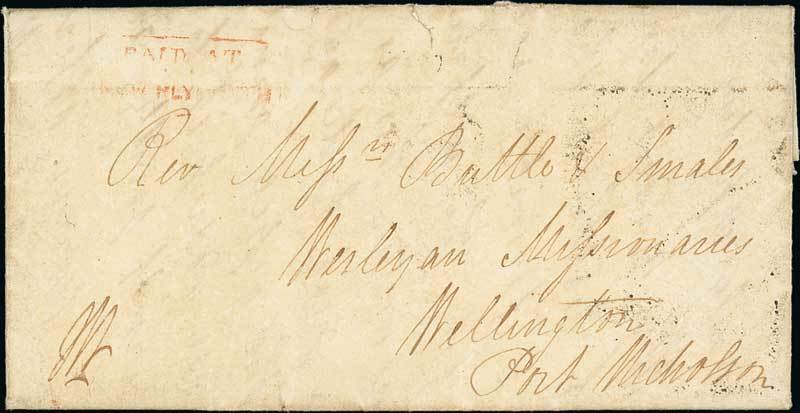 PAID AT
Rev Messrs Buttle & Smales
Wesleyan Missionaries
Wellington
Port Nicholson